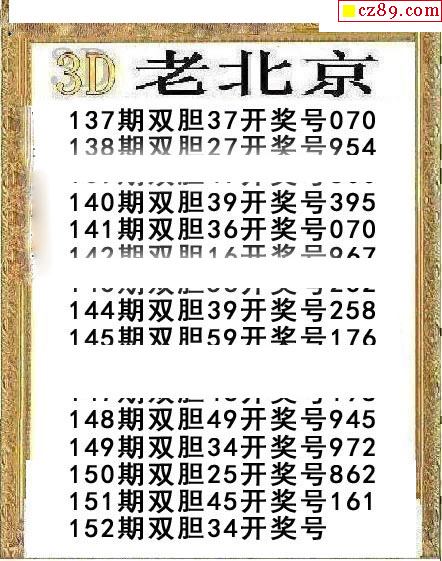 cz89.com
3D 老北京
137期双胆37开奖号070
138期双胆27开奖号954
140期双胆39开奖号395
141期双胆36开奖号070
142期双胆16开奖号967
144期双胆39开奖号258
145期双胆59开奖号176
148期双胆49开奖号945
149期双胆34开奖号972
150期双胆25开奖号862
151期双胆45开奖号161
152期双胆34开奖号